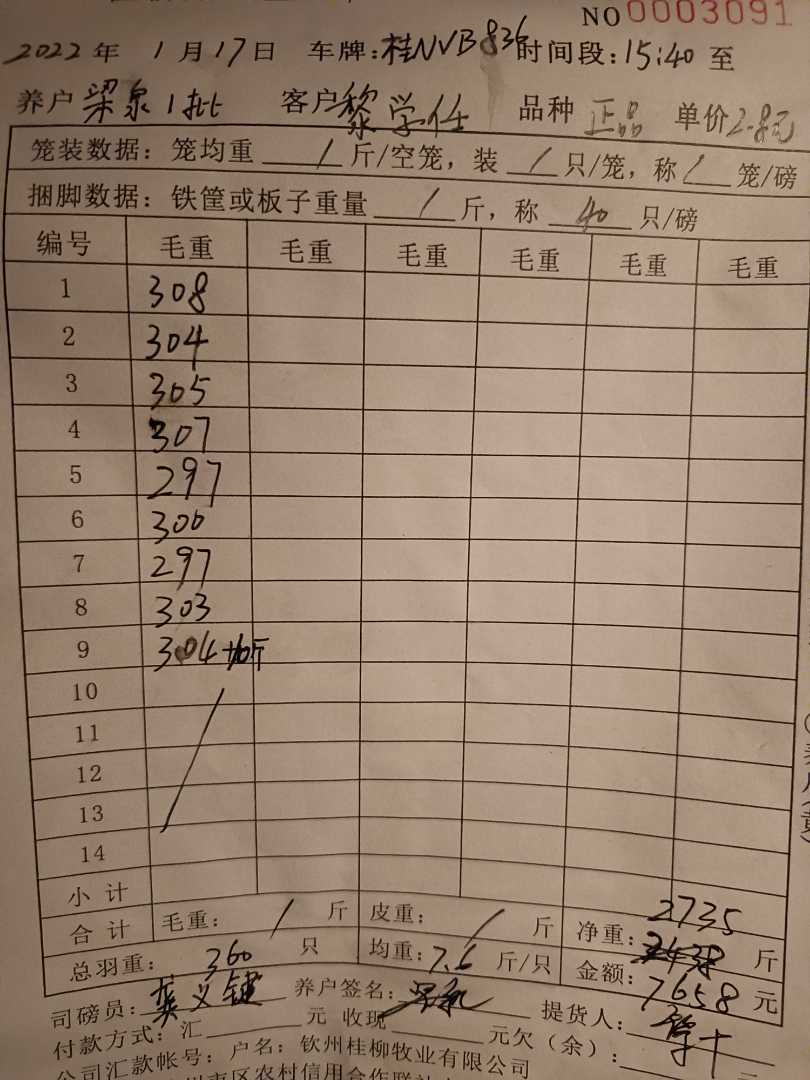 NO 0003091
2022年 1月17日 车牌:桂NVB836 时间段:15:40 至
养户 梁泉1批 客户 黎学任 品种 正品 单价 2.8元
笼装数据: 笼均重 / 斤/空笼, 装 / 只/笼, 称 / 笼/磅
捆脚数据: 铁筐或板子重量 / 斤, 称 40 只/磅
编号 毛重 毛重 毛重 毛重 毛重 毛重
1 308
2 304
3 305
4 307
5 297
6 300
7 297
8 303
9 304 +10斤
10
11
12
13
14
小计
合计 毛重: / 斤 皮重: / 斤 净重: 2735 斤
总羽重: 360 只 均重: 7.6 斤/只 金额: 7658 元
司磅员: 龚义键 养户签名: 提货人:
付款方式: 汇 元 收现 元欠(余):
公司汇款帐号: 户名: 钦州桂柳牧业有限公司
区农村信用合作联社